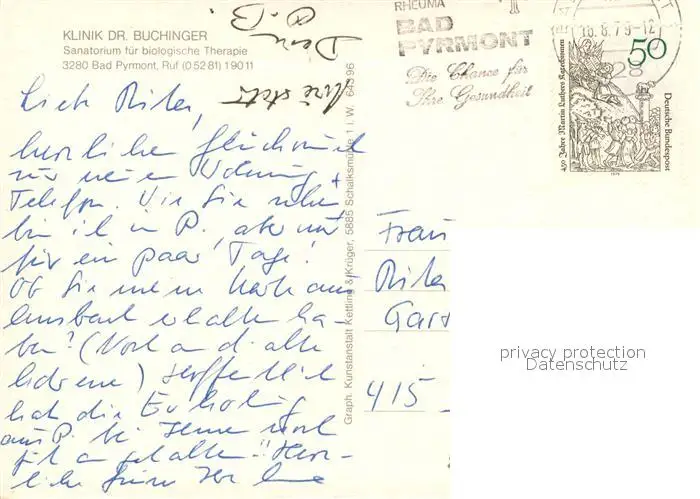 KLINIK DR. BUCHINGER
Sanatorium für biologische Therapie
3280 Bad Pyrmont, Ruf (05281) 19011
RHEUMA
BAD
PYRMONT
Die Chance für
Ihre Gesundheit
16.6.79-12
50
450 Jahre Martin Luthers Katechismus
Deutsche Bundespost
1979
Liebe Rita,
herzlichen Glückwunsch
zur neuen Wohnung +
Telefon. Wie Sie sehen
bin ich in P., aber nur
für ein paar Tage!
Ob Sie meine Karte aus
erhalten ha-
ben? (Noch an d. alte
Adresse) Hoffentlich
hat die Erholung
aus P. bei Ihnen noch
angehalten. Herz-
liche Grüße Ihre
Graph. Kunstanstalt Kettling & Krüger, 5885 Schalksmühle 1 i. W. 64396
Frau
Rita
415
privacy protection
Datenschutz